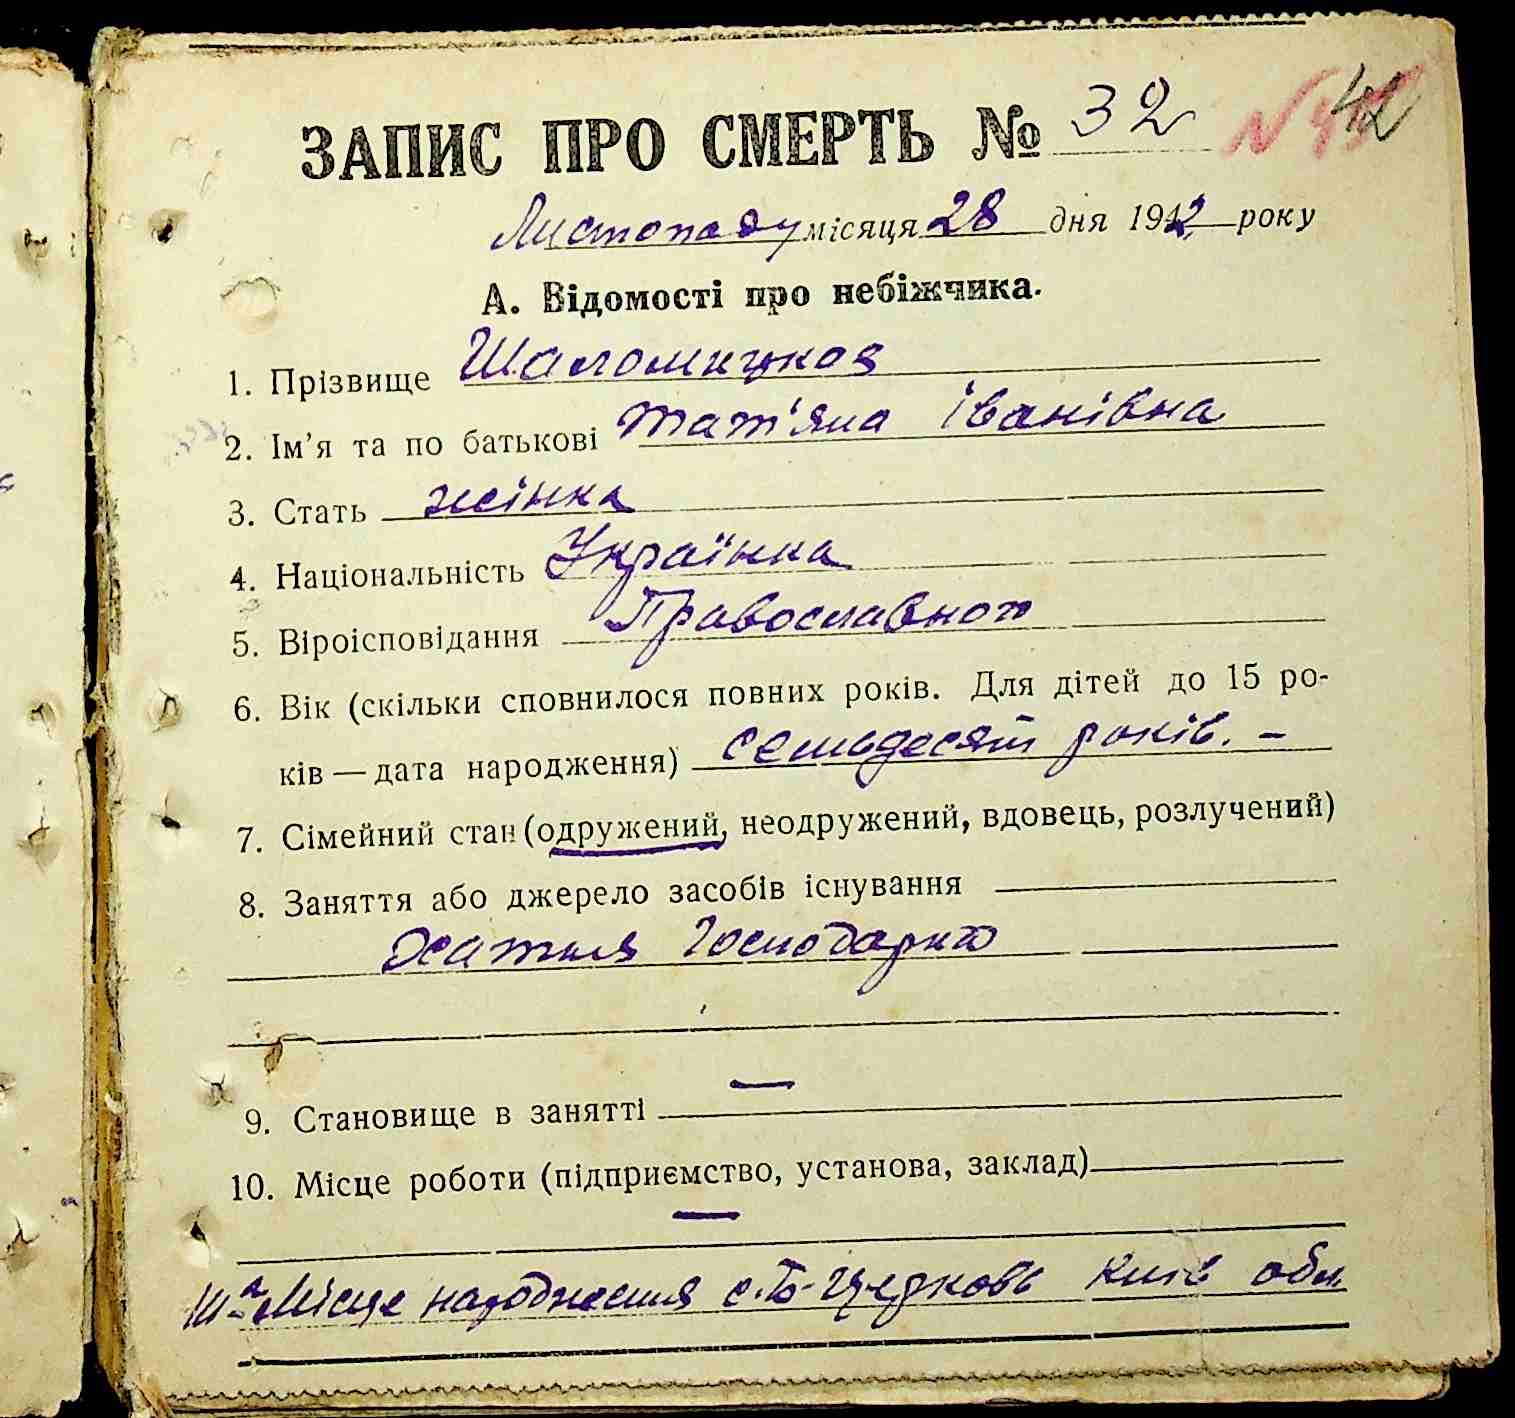 ЗАПИС ПРО СМЕРТЬ № 32 № 42
Листопаду місяця 28 дня 1942 року
А. Відомості про небіжчика.
1. Прізвище Шаломицкая
2. Ім'я та по батькові Тат'яна Іванівна
3. Стать жінка
4. Національність Українка
5. Віроісповідання Православноп
6. Вік (скільки сповнилося повних років. Для дітей до 15 ро-
ків — дата народження) семьдесят років. –
7. Сімейний стан (одружений, неодружений, вдовець, розлучений)
8. Заняття або джерело засобів існування
Хатня Господарка
9. Становище в занятті —
10. Місце роботи (підприємство, установа, заклад)
—
Місце народження с. Б-Церковь Київ обл.